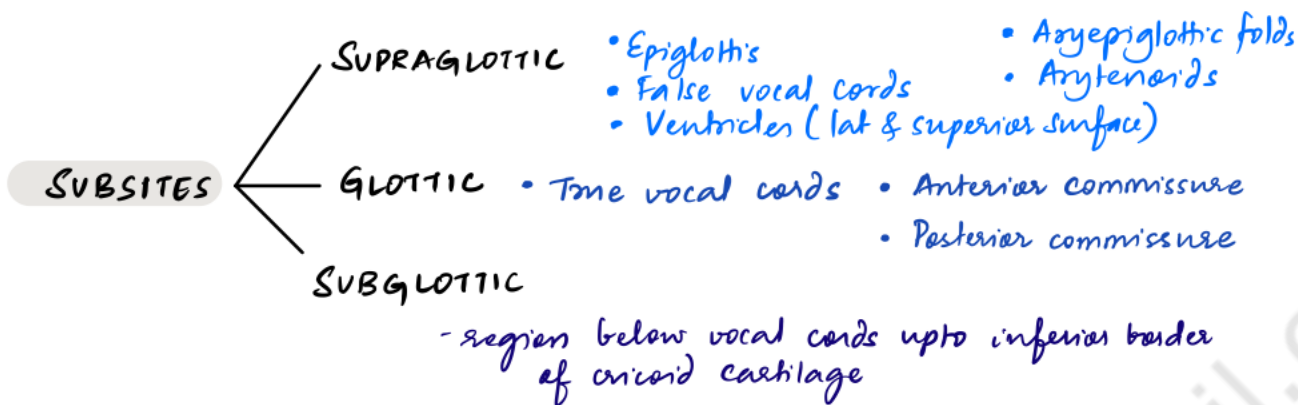 SUBSITES
SUPRAGLOTTIC
• Epiglottis
• False vocal cords
• Ventricles (lat & superior surface)
• Aryepiglottic folds
• Arytenoids
GLOTTIC
• True vocal cords
• Anterior commissure
• Posterior commissure
SUBGLOTTIC
- region below vocal cords upto inferior border
of cricoid cartilage